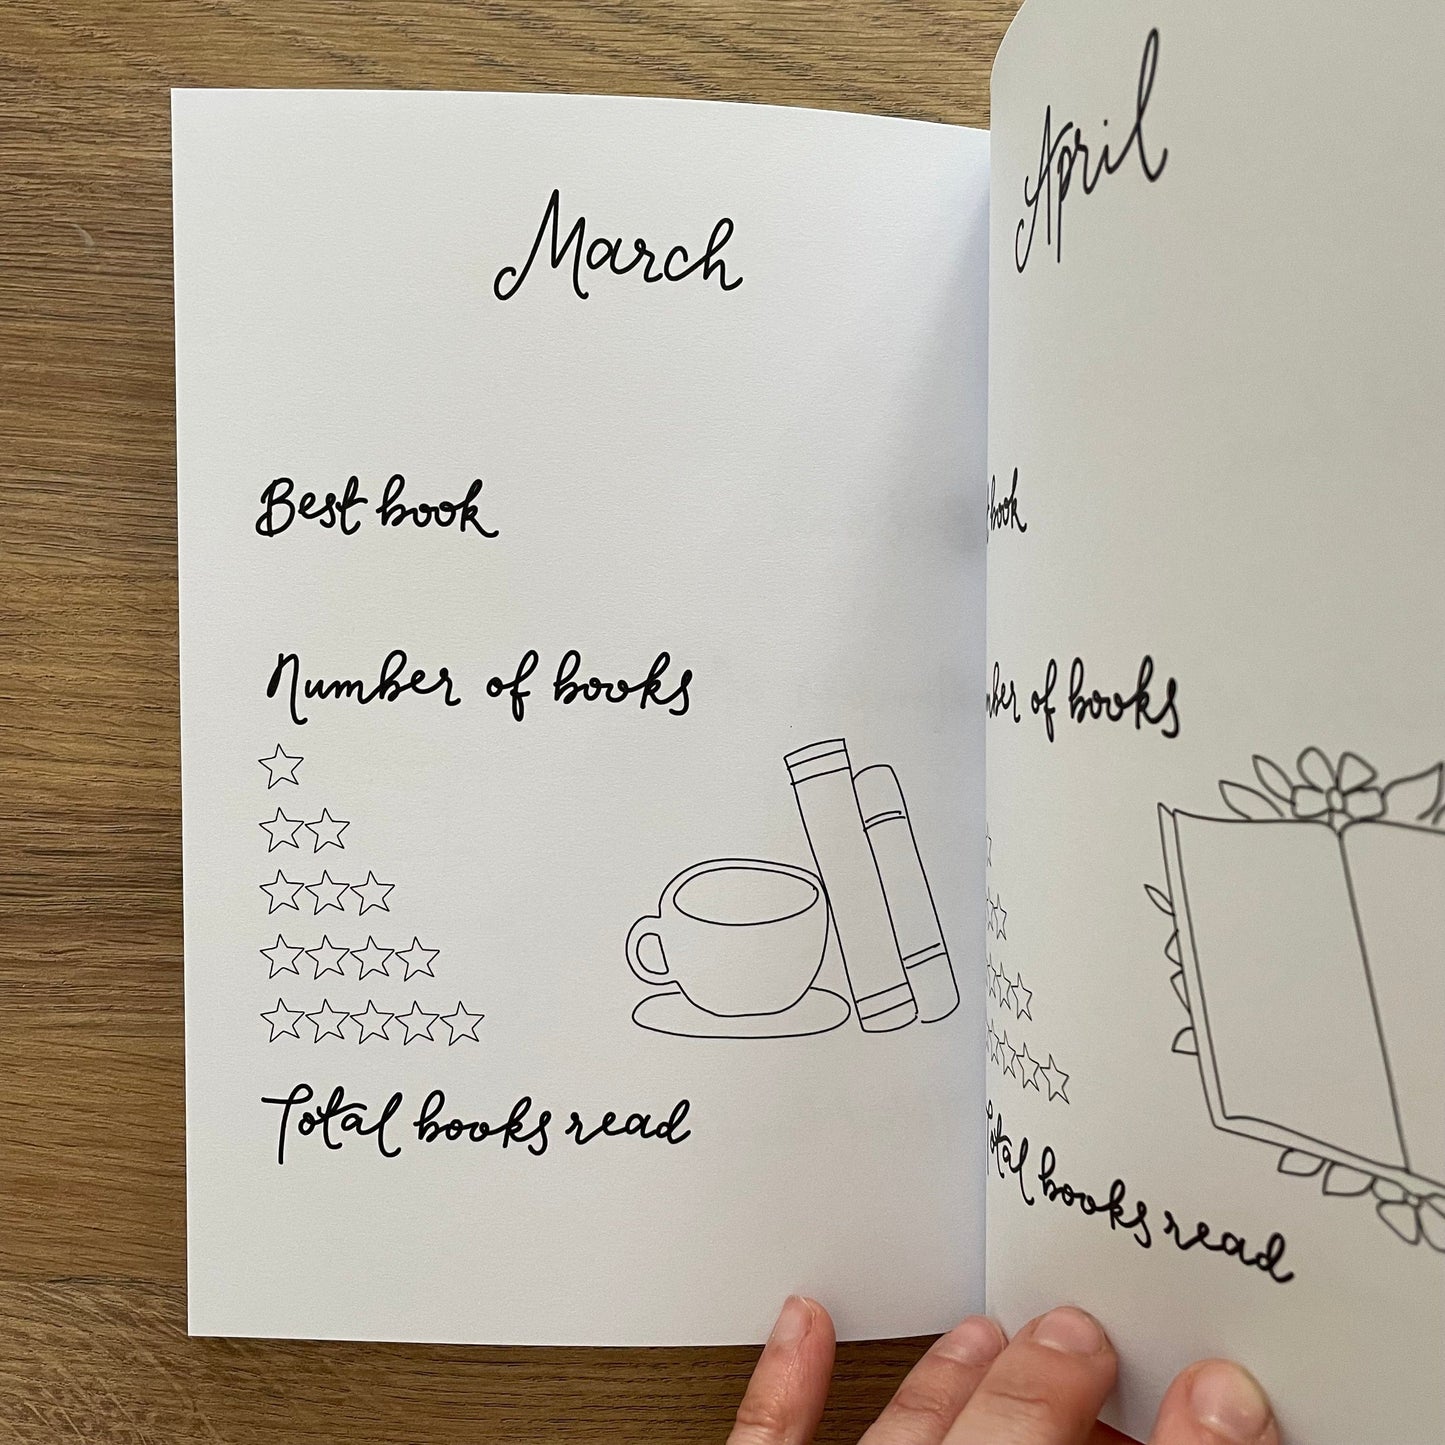 March
Best book
Number of books
Total books read
April
book
of books
Total books read